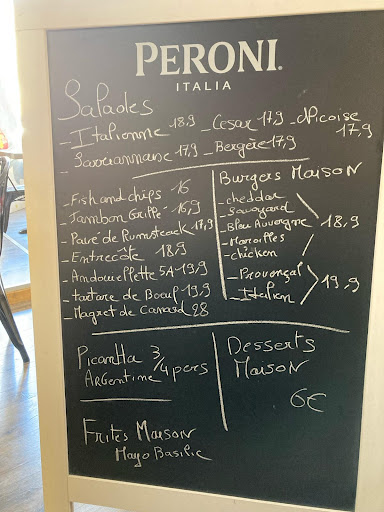 PERONI
ITALIA
Salades
- Italienne 18,9 - Cesar 17,9 - Niçoise 17,9
- Savoiannane 17,9 - Bergère 17,9
- Fish and chips 16
- Jambon Grillé 16,9
- Pavé de Rumsteack 17,9
- Entrecote 18,9
- Andouellette 5A - 19,9
- tartare de Bœuf 19,9
- Magret de Canard 28
Burgers Maison
- cheddar
- Savoyard
- Bleu Auvergne 18,9
- Maroilles
- chicken
- Provençal
- Italien 19,9
Picanha 3/4 pers
ARGENTINE
Desserts
Maison
6€
Frites Maison
Mayo Basilic